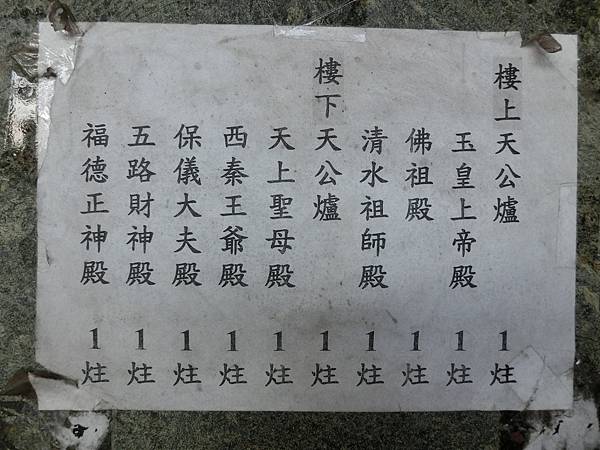 樓上天公爐 1炷
玉皇上帝殿 1炷
佛祖殿 1炷
清水祖師殿 1炷
樓下天公爐 1炷
天上聖母殿 1炷
西秦王爺殿 1炷
保儀大夫殿 1炷
五路財神殿 1炷
福德正神殿 1炷